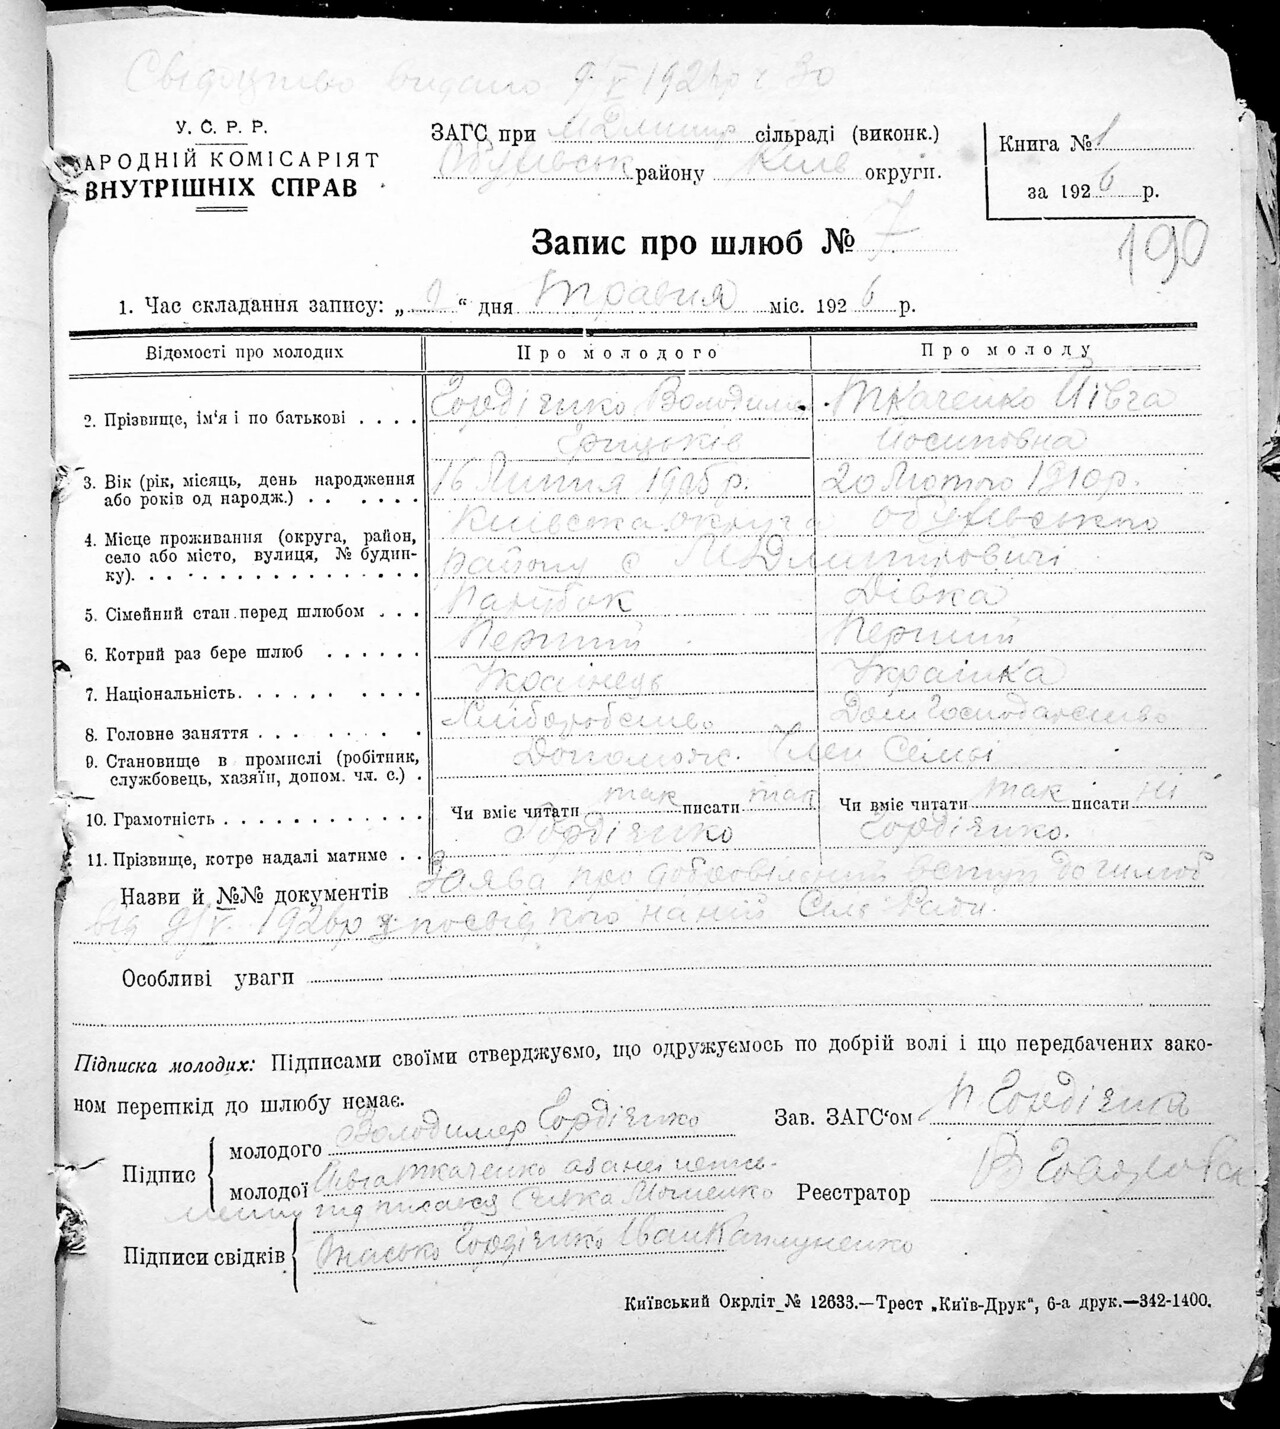 Свідоцтво видано 9/V 1926р ч 30
У. С. Р. Р.
АРОДНІЙ КОМІСАРІЯТ
ВНУТРІШНІХ СПРАВ
ЗАГС при сільраді (виконк.)
Обухівськ району Київ округи.
Книга № 1
за 1926 р.
190
Запис про шлюб № 7
1. Час складання запису: „9“ дня Травня міс. 1926 р.
Відомості про молодих
Про молодого
Про молоду
2. Прізвище, ім'я і по батькові . . . .
Гордієнко Володимир
Грицьків
Ткаченко Півга
Йосиповна
3. Вік (рік, місяць, день народження
або років од народж.) . . . . . .
16 Липня 1905 р.
20 Лютого 1910 р.
4. Місце проживання (округа, район,
село або місто, вулиця, № будин-
ку). . . . . . . . . . . . . . . .
Київська округа Обухівського
району с М Дмитровичі
5. Сімейний стан перед шлюбом . . .
Парубок
Дівка
6. Котрий раз бере шлюб . . . . . .
Перший
Перший
7. Національність. . . . . . . . . .
Українець
Українка
8. Головне заняття . . . . . . . .
Хліборобство
Дом Господарство
9. Становище в промислі (робітник,
службовець, хазяїн, допом. чл. с.) .
Допомож. Член Семьї
10. Грамотність . . . . . . . . . . . .
Чи вміє читати так писати так
Чи вміє читати так писати ні
11. Прізвище, котре надалі матиме . .
Гордієнко
Гордієнко.
Назви й №№ документів Заява про добровільний вступ до шлюб
від 9/V. 1926р Сіль Ради.
Особливі уваги
Підписка молодих: Підписами своїми стверджуємо, що одружуємось по добрій волі і що передбачених зако-
ном перешкід до шлюбу немає.
Зав. ЗАГС'ом Гордієнко
Підпис
молодого Володимер Гордієнко
молодої Півга Ткаченко а за неї непись-
менну підписався
Реєстратор В
Підписи свідків
Гордієнко Іван
Київський Окрліт № 12633.—Трест „Київ-Друк“, 6-а друк.—342-1400.